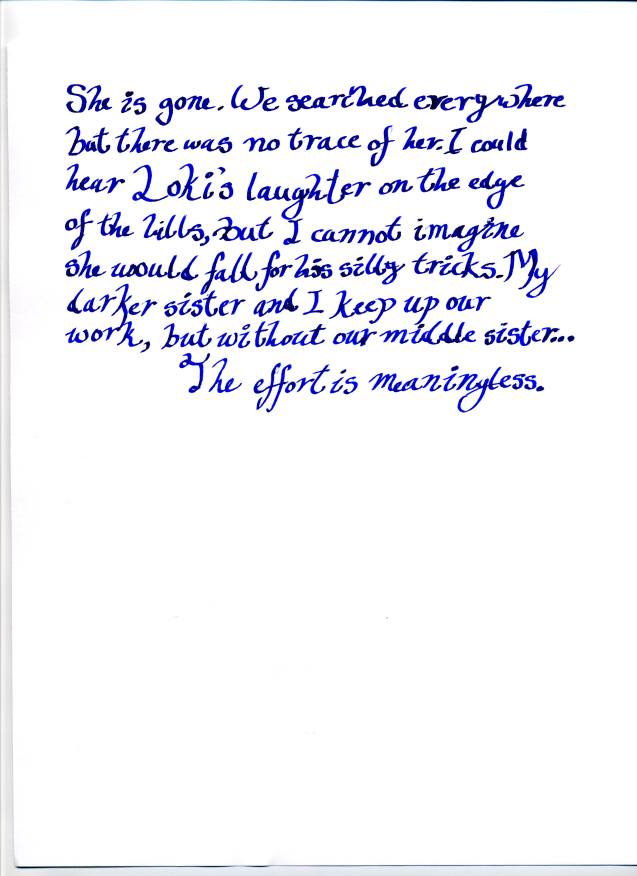 She is gone. We searched everywhere
but there was no trace of her. I could
hear Loki's laughter on the edge
of the hills, but I cannot imagine
she would fall for his silly tricks. My
darker sister and I keep up our
work, but without our middle sister...
The effort is meaningless.